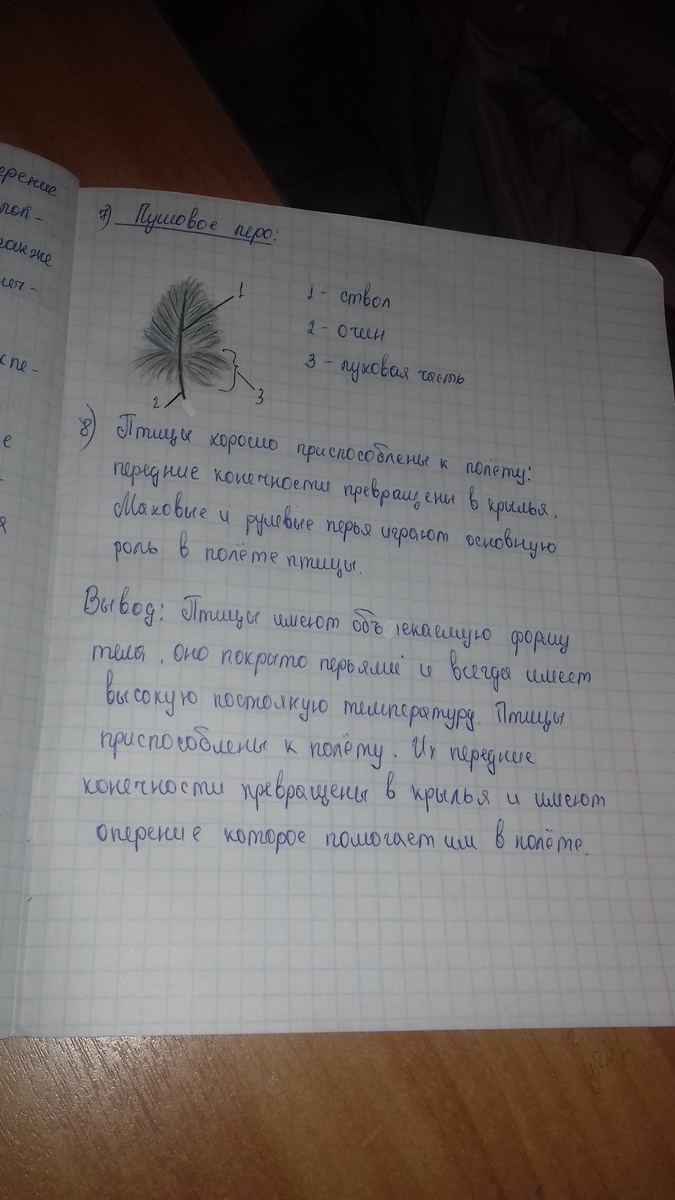 7) Пуховое перо:
1
2
3
1 - ствол
2 - очин
3 - пуховая часть
8) Птицы хорошо приспособлены к полёту:
передние конечности превращены в крылья.
Маховые и рулевые перья играют основную
роль в полёте птицы.
Вывод: Птицы имеют обтекаемую форму
тела, оно покрыто перьями и всегда имеет
высокую постоякую температуру. Птицы
приспособлены к полёту. Их передние
конечности превращены в крылья и имеют
оперение которое помогает им в полёте.